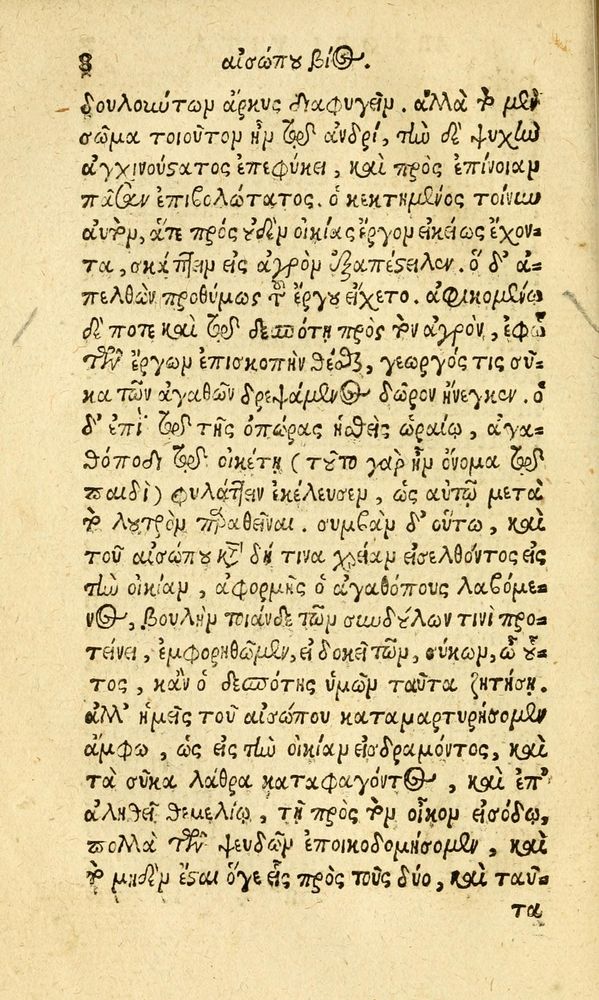 8 αἰσώπου βίος.
δουλοσύνην ἄρκυς διαφυγεῖν. ἀλλὰ τὸ μὲν
σῶμα τοιοῦτον ἦν τῷ ἀνδρί, τὴν δὲ ψυχὴν
ἀγχινούστατος ἐπεφύκει, καὶ πρὸς ἐπίνοιαν
πᾶσαν ἐπιβολώτατος. ὁ κεκτημένος τοίνυν
αὐτὸν, ἅτε πρὸς οὐδὲν οἰκίας ἔργον εἰκείως ἔχον-
τα, σκάπτειν εἰς ἀγρὸν ἐξαπέστειλεν. ὁ δ' ἀ-
πελθὼν προθύμως τοῦ ἔργου εἴχετο. ἀφικομένῳ
δέ ποτε καὶ τῷ δεσπότῃ πρὸς τὸν ἀγρόν, ἐφ' ᾧ
τῶν ἔργων ἐπισκοπὴν θέσθαι, γεωργός τις σῦ-
κα τῶν ἀγαθῶν δρεψάμενος δῶρον ἤνεγκεν. ὁ
δ' ἐπὶ τῷ τῆς ὀπώρας ἡσθεὶς ὡραίῳ, ἀγα-
θόποδι τῷ οἰκέτῃ (τοῦτο γὰρ ἦν ὄνομα τῷ
παιδὶ) φυλάττειν ἐκέλευσεν, ὡς αὐτῷ μετὰ
τὸ λουτρὸν παραθεῖναι. συμβὰν δ' οὕτω, καὶ
τοῦ αἰσώπου κατὰ δή τινα χρείαν εἰσελθόντος εἰς
τὴν οἰκίαν, ἀφορμῆς ὁ ἀγαθόπους λαβόμε-
νος, βουλὴν τοιάνδε τῶν συνδούλων τινὶ προ-
τείνει, ἐμφορηθῶμεν, εἰ δοκεῖ τῶν, σύκων, ὦ οὗ-
τος, κἂν ὁ δεσπότης ὑμῶν ταῦτα ζητήσῃ.
ἀλλ' ἡμεῖς τοῦ αἰσώπου καταμαρτυρήσομεν
ἄμφω, ὡς εἰς τὴν οἰκίαν εἰσδραμόντος, καὶ
τὰ σῦκα λάθρα καταφαγόντος, καὶ ἐπ'
ἀληθεῖ θεμελίῳ, τῇ πρὸς τὸν οἶκον εἰσόδῳ,
πολλὰ τῶν ψευδῶν ἐποικοδομήσομεν, καὶ
τὸ μηδὲν ἔσται ὅγε εἷς πρὸς τοὺς δύο, καὶ ταῦ-
τα